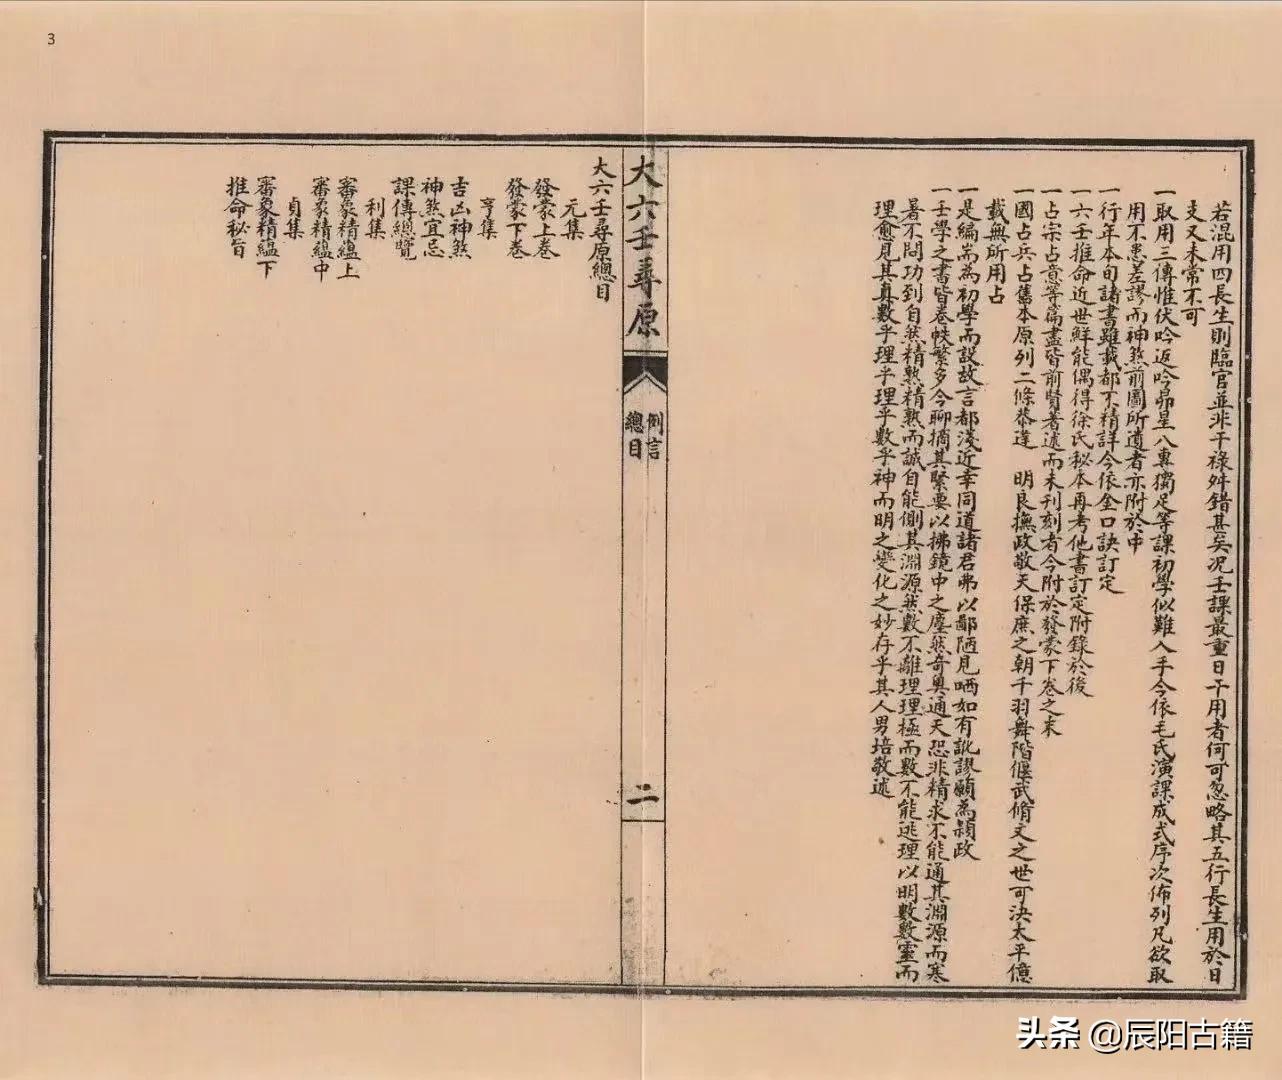 3
若混用四長生則臨官並非干祿舛錯甚矣況壬課最重日干用者何可忽略其五行長生用於日
支又未常不可
一取用三傳惟伏吟返吟昴星八專獨足等課初學似難入手今依毛氏演課成式序次佈列凡欲取
用不患差謬而神煞前圖所遺者亦附於中
一行年本旬諸書雖載都不精詳今依金口訣訂定
一六壬推命近世鮮能偶得徐氏秘本再考他書訂定附錄於後
一占宗占意等篇盡皆前賢著述而未刊刻者今附於發蒙下卷之末
一國占兵占舊本原列二條恭逢 明良撫政敬天保庶之朝干羽舞階偃武脩文之世可決太平億
載無所用占
一是編耑為初學而設故言都淺近幸同道諸君弗以鄙陋見哂如有訛謬願為頴政
一壬學之書皆卷帙繁多今聊摘其緊要以拂鏡中之塵然奇奧通天恐非精求不能通其淵源而寒
暑不問功到自然精熟精熟而誠自能測其淵源然數不離理理極而數不能逃理以明數數靈而
理愈見其真數乎理乎理乎數乎神而明之變化之妙存乎其人男培敬述
大六壬尋原
例言
總目
二
大六壬尋原總目
元集
發蒙上卷
發蒙下卷
亨集
吉凶神煞
神煞宜忌
課傳總覽
利集
審象精蘊上
審象精蘊中
貞集
審象精蘊下
推命秘旨
头条 @辰阳古籍